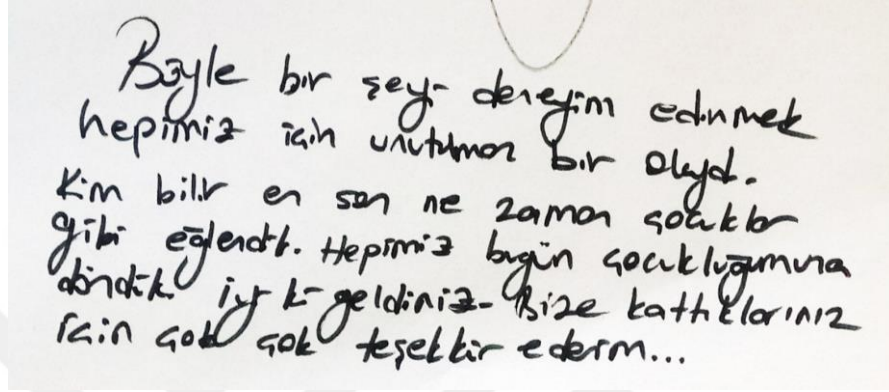 Böyle bir şeyi deneyim edinmek
hepimiz için unutulmaz bir olaydı.
Kim bilir en son ne zaman çocuklar
gibi eğlendik. Hepimiz bugün çocukluğumuza
döndük. iyi ki geldiniz. Bize kattıklarınız
için çok çok teşekkür ederim...